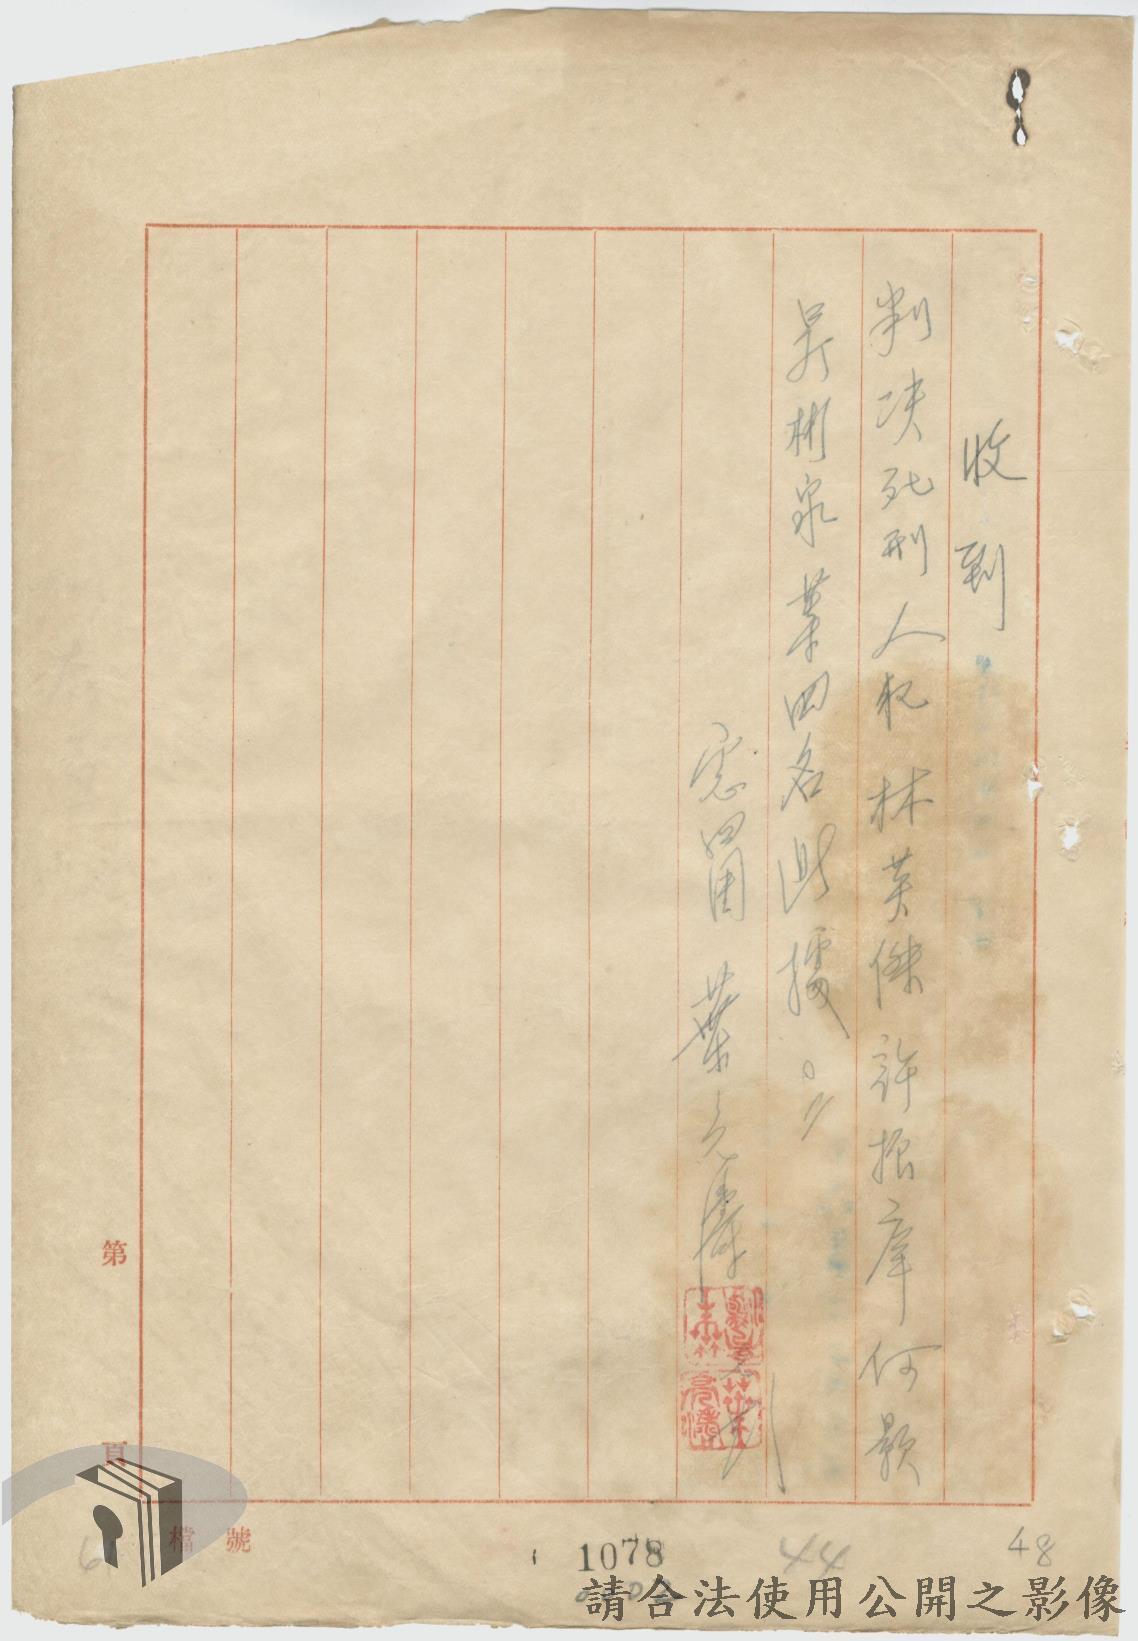 收到
判决死刑人犯林英傑許振庠何顯
吳彬泉等四名此據。
憲四團 葉亮濤
第 頁
檔號
1078
44
48
請合法使用公開之影像